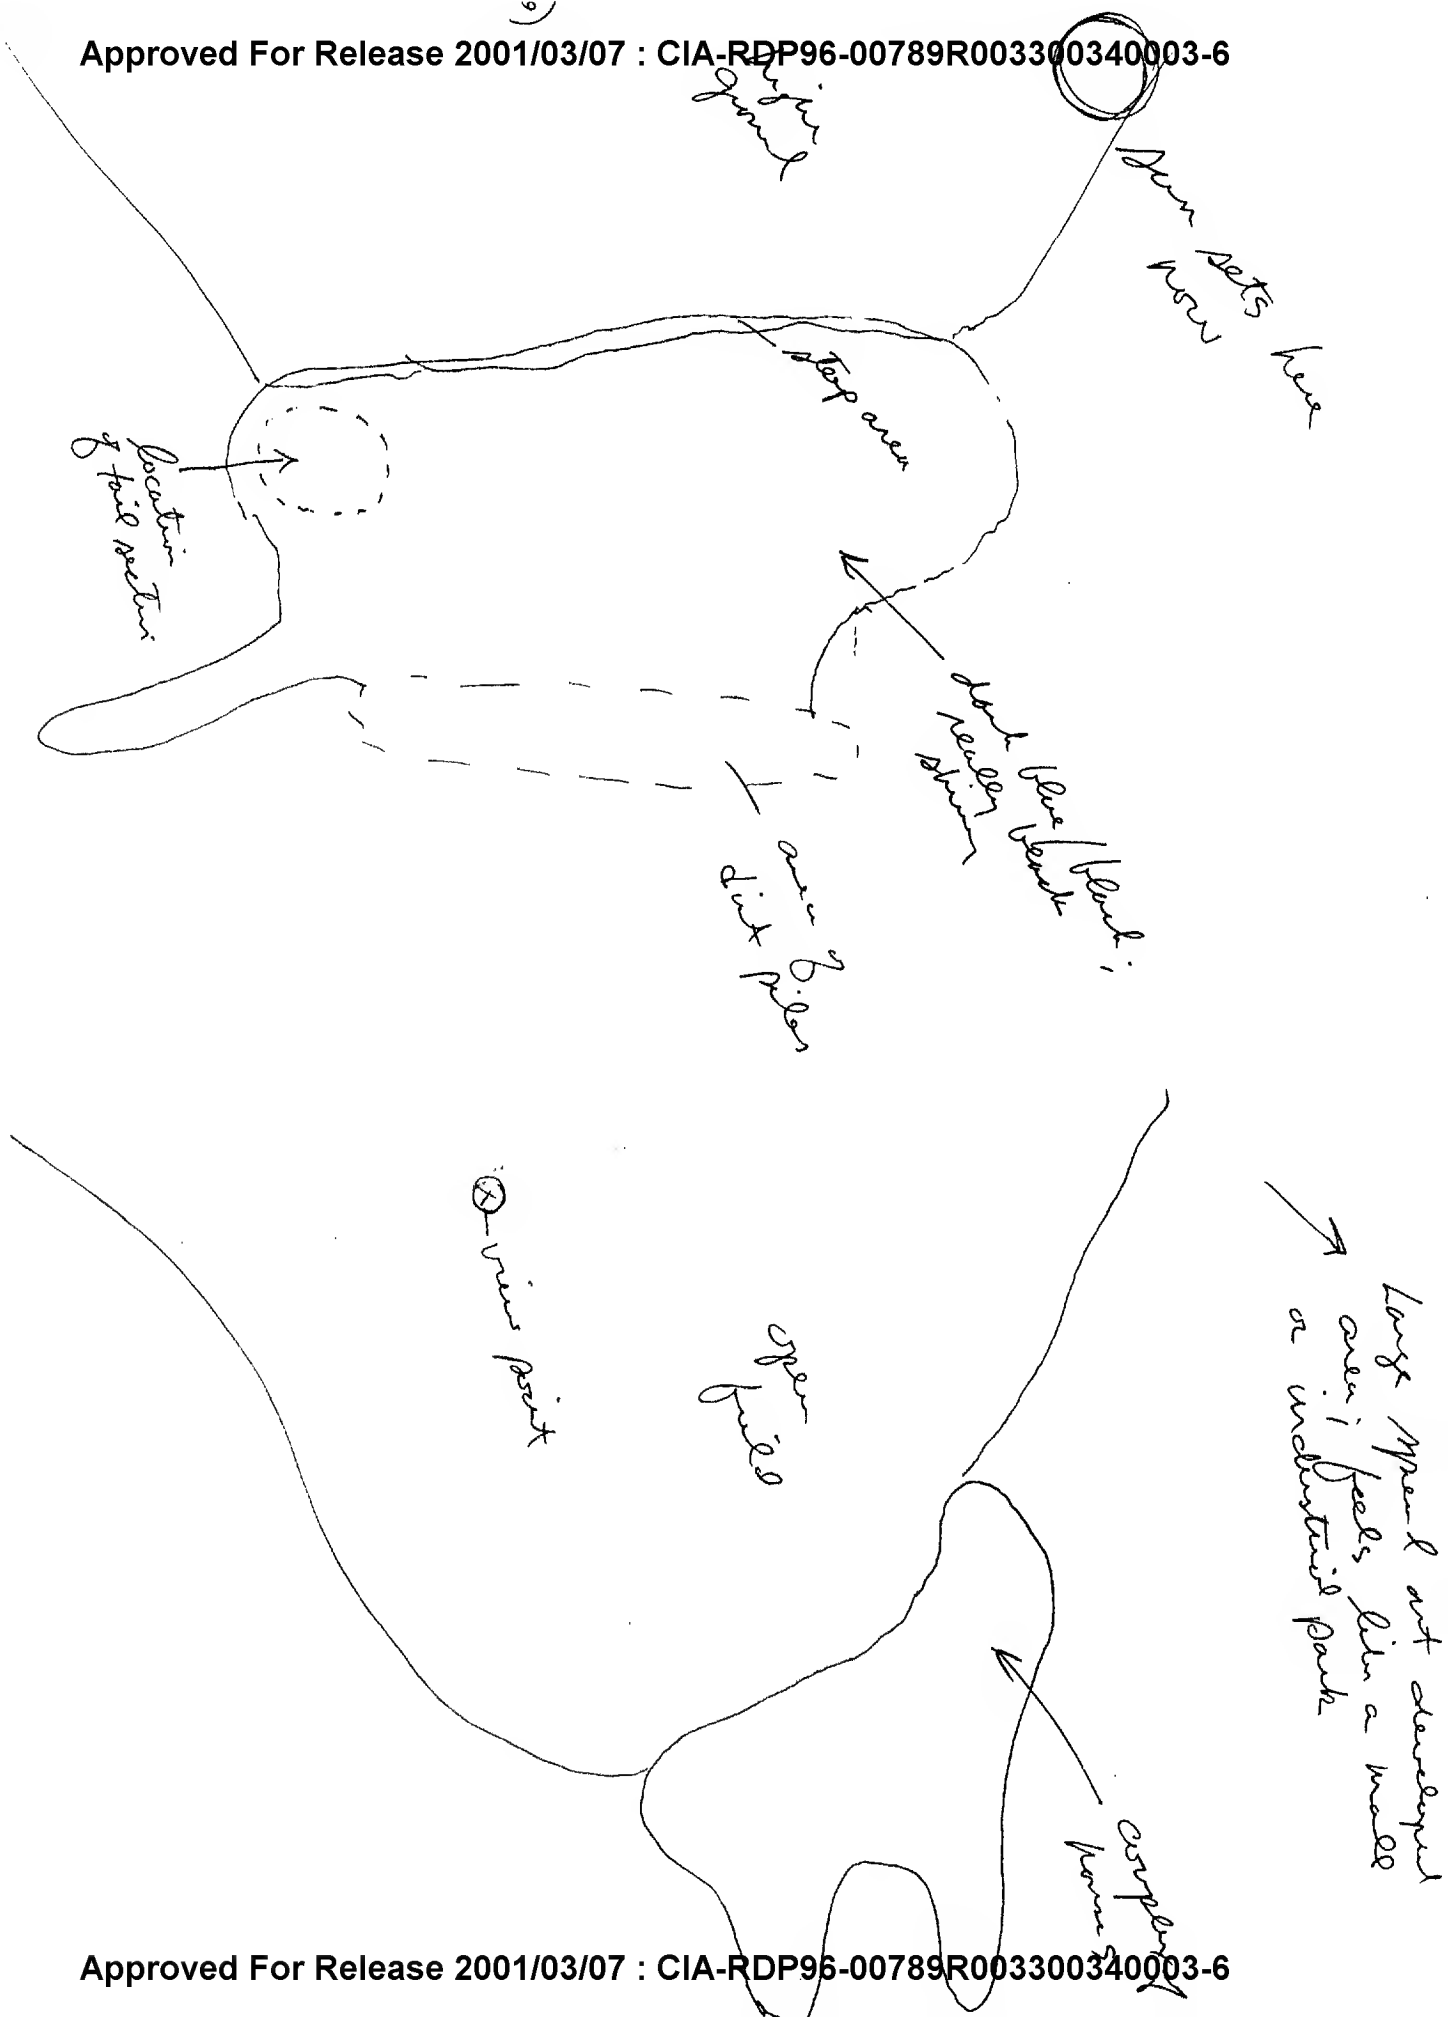 9)
Approved For Release 2001/03/07 : CIA-RDP96-00789R003300340003-6
ground
Sun sets here
now
steep area
location
of tail section
dark blue/black;
really black
shiny
area of
dirt piles
view point
open
field
Large spread out developed
area; feels like a mall
or industrial park
complex of
homes
Approved For Release 2001/03/07 : CIA-RDP96-00789R003300340003-6